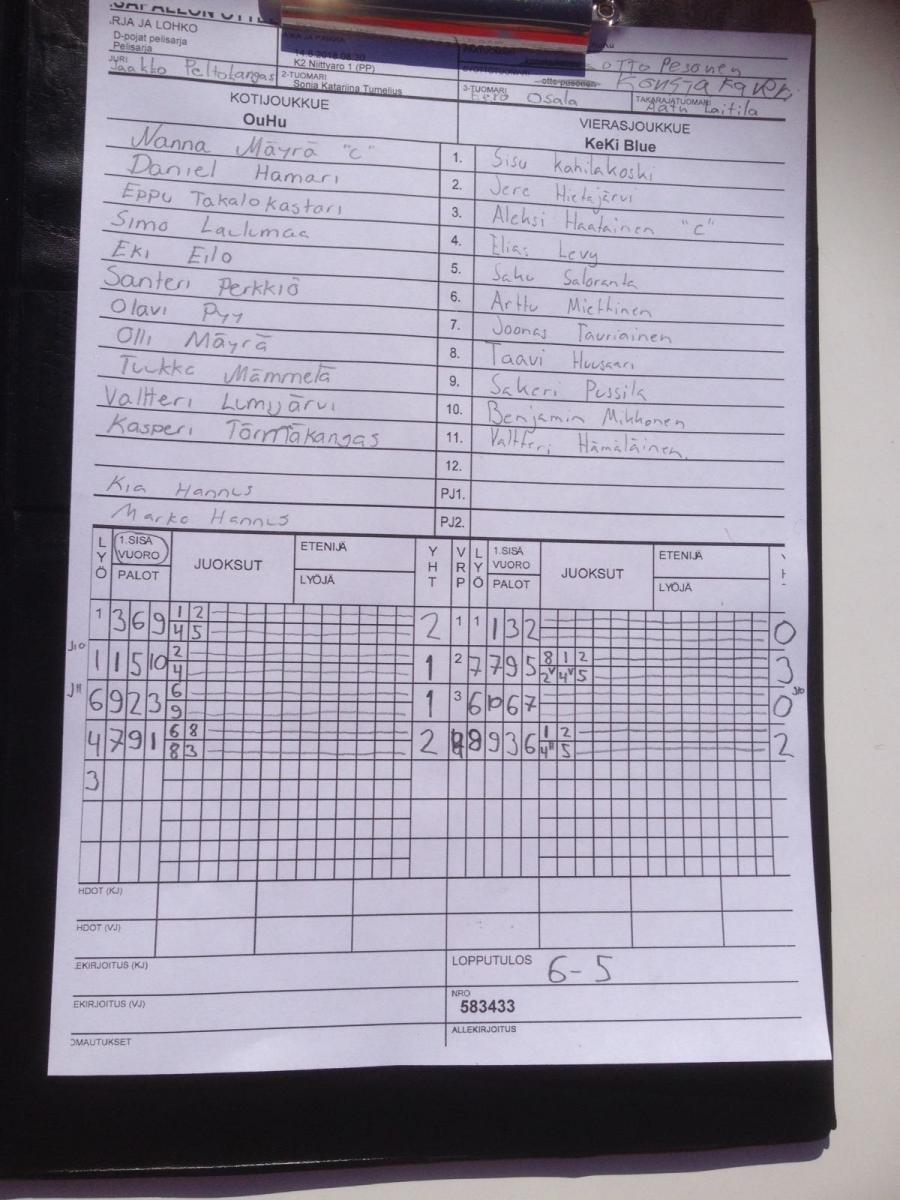 .RJA JA LOHKO
D-pojat pelisarja
Pelisarja
K2 Niittyaro 1 (PP)
otto Pesonen
JURI Jaakko Peltokangas
2-TUOMARI Sonia Katariina Tumelius
3-TUOMARI Eero Osala
TAKARAJATUOMARI Laitila
KOTIJOUKKUE
OuHu
VIERASJOUKKUE
KeKi Blue
Nanna Mäyrä "C" 1. Sisu Kahilakoski
Daniel Hamari 2. Jere Hietajärvi
Eppu Takalokastari 3. Aleksi Haatainen "C"
Simo Laukumaa 4. Elias Levy
Eki Eilo 5. Saku Saloranta
Santeri Perkkiö 6. Arttu Miettinen
Olavi Pyy 7. Joonas Tauriainen
Olli Mäyrä 8. Taavi Huusaari
Tuukka Mämmelä 9. Sakeri Pussila
Valtteri Lumijärvi 10. Benjamin Mikkonen
Kasperi Törmäkangas 11. Valtteri Hämäläinen
12.
Kia Hannus PJ1.
Marko Hannus PJ2.
LYÖ 1.SISÄ VUORO PALOT JUOKSUT ETENIJÄ LYÖJÄ YHT VRP LYÖ 1.SISÄ VUORO PALOT JUOKSUT ETENIJÄ LYÖJÄ
1 3 6 9 1 2 2 1 1 1 3 2 0
4 5
J10 1 1 5 10 2 1 2 7 7 9 5 8 1 2 3
4 2v 4v 5
J11 6 9 2 3 6 1 3 6 10 6 7 0 J10
9
4 7 9 1 6 8 2 8 9 3 6 1 2 2
8 3 4" 5
3
HDOT (KJ)
HDOT (VJ)
EKIRJOITUS (KJ)
LOPPUTULOS 6-5
EKIRJOITUS (VJ)
NRO
583433
OMAUTUKSET
ALLEKIRJOITUS